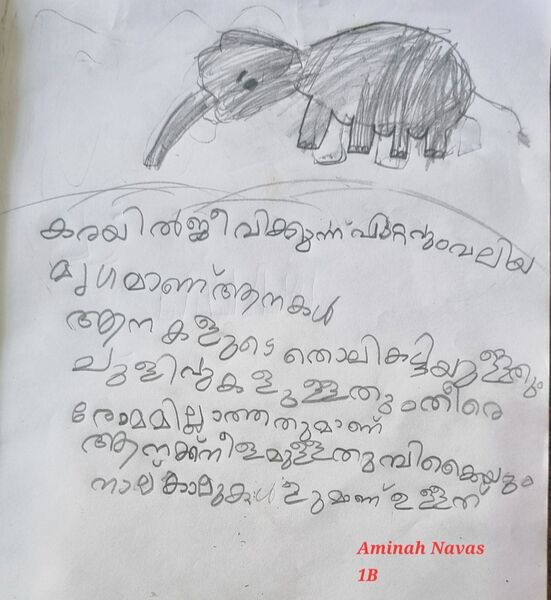 കരയിൽജീവിക്കുന്ന് ഏറ്റവുംവലിയ
മൃഗമാണ് ആനകൾ
ആനകളുടെ തൊലികട്ടിയുള്ളതും
ചുളിവുകളുള്ളതുംതീരെ
രോമമില്ലാത്തതുമാണ്
ആനക്ക്നീളമുള്ളതുമ്പികൈയും
നാല്കാലുകളുമാണ് ഉള്ളത്
Aminah Navas
1B